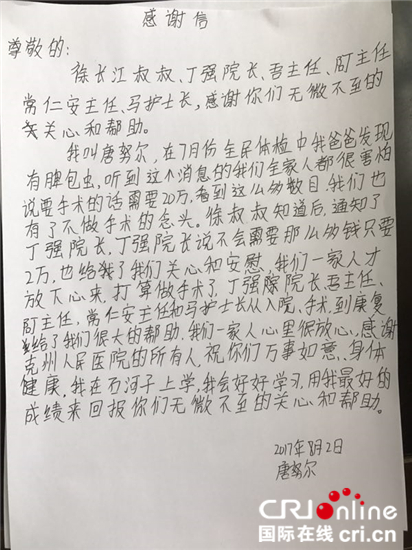 感谢信
尊敬的:
徐长江叔叔、丁强院长、吾主任、阿主任
常仁安主任、马护士长,感谢你们无微不至的
关心和帮助。
我叫唐努尔,在7月份全民体检中我爸爸发现
有脾包虫,听到这个消息的我们全家人都很害怕
说要手术的话需要20万,看到这么多数目,我们也
有了不做手术的念头。徐叔叔知道后,通知了
丁强院长,丁强院长说不会需要那么多钱只要
2万,也给我了我们关心和安慰,我们一家人才
放下心来,打算做手术了,丁强院长、吾主任、
阿主任,常仁安主任和马护士长从入院,手术,到康复
给了我们很大的帮助,我们一家人心里很放心,感谢
克州人民医院的所有人,祝你们万事如意、身体
健康,我在石河子上学,我会好好学习,用我最好的
成绩来回报你们无微不至的关心和帮助。
2017年8月2日
唐努尔
CRIonline
国际在线 cri.cn